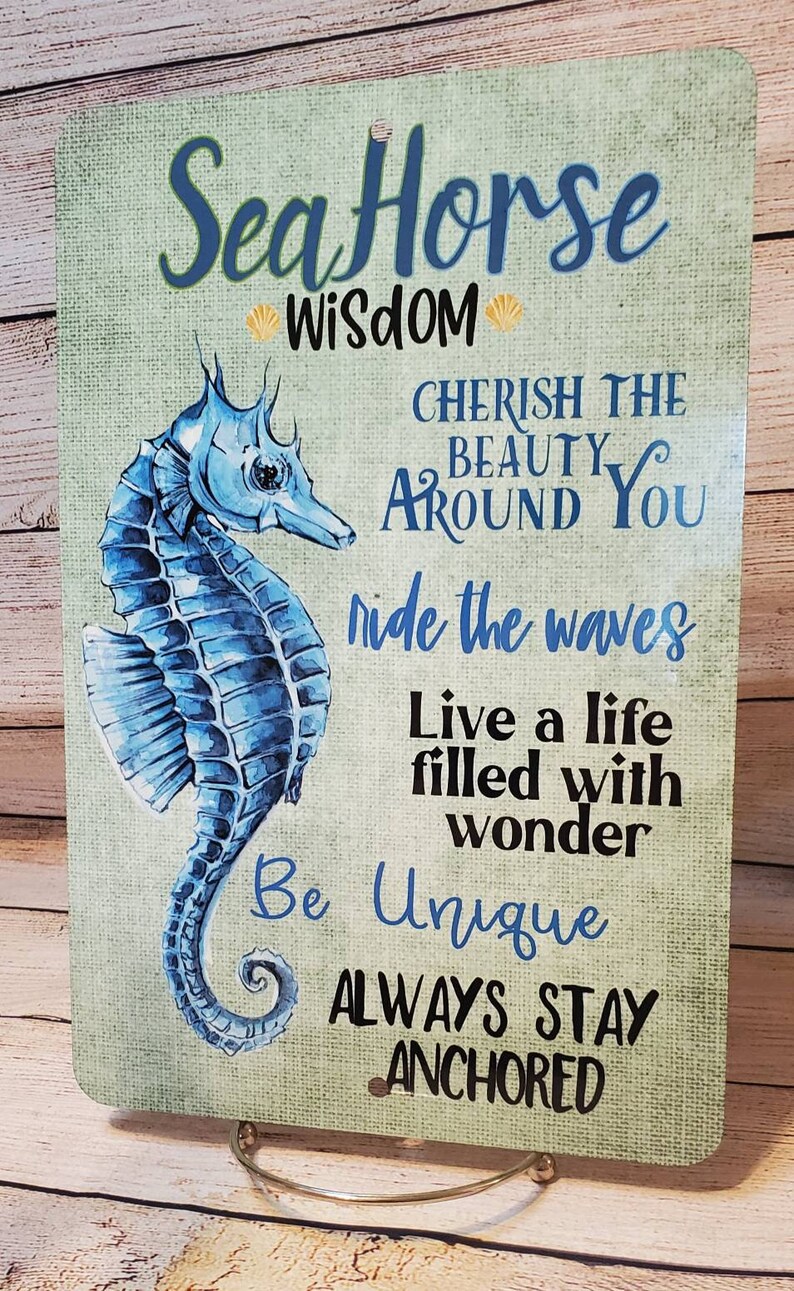 SeaHorse
WiSdOM
CHERISH THE
BEAUTY
AROUND YOU
ride the waves
Live a life
filled with
wonder
Be Unique
ALWAYS STAY
ANCHORED